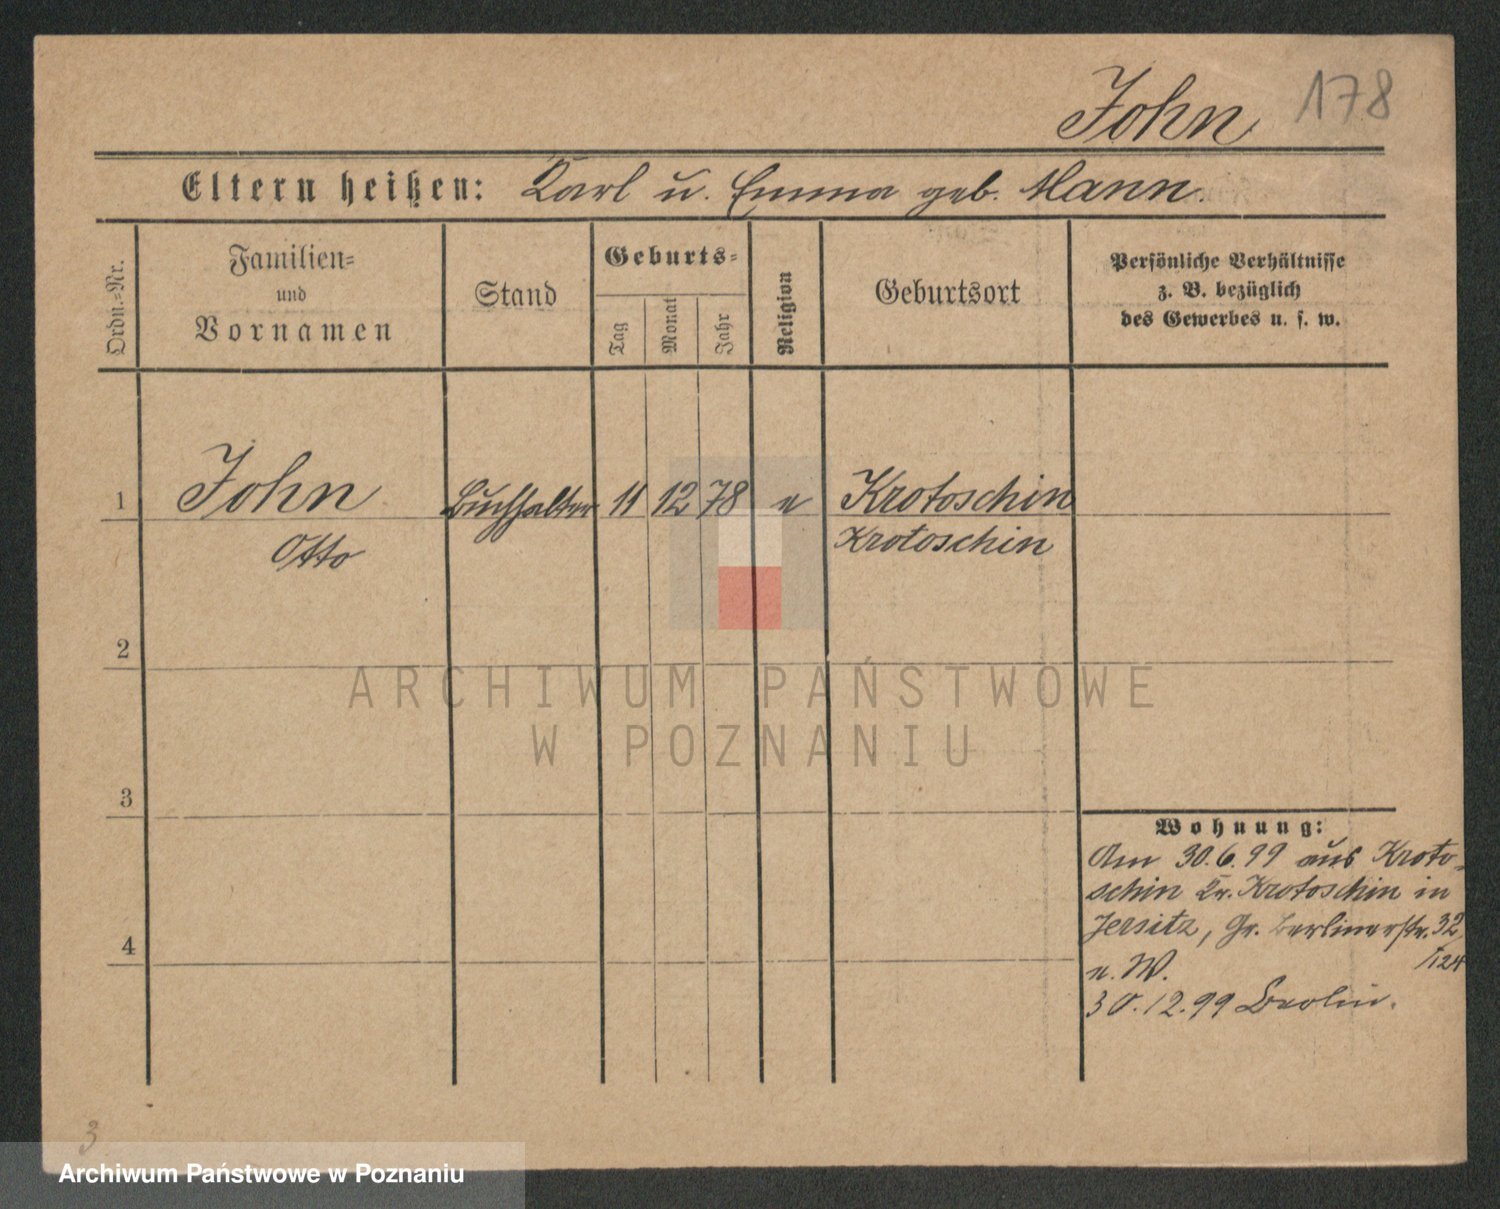 John 178
Eltern heißen: Karl u. Emma geb. Mann.
Ordn.-Nr.
Familien-
und
Vornamen
Stand
Geburts-
Tag
Monat
Jahr
Religion
Geburtsort
Persönliche Verhältnisse
z. B. bezüglich
des Gewerbes u. s. w.
1 John Buchhalter 11 12 78 e Krotoschin
Otto Krotoschin
2
ARCHIWUM PAŃSTWOWE
W POZNANIU
3
Wohnung:
Am 30.6.99 aus Kroto-
schin Kr. Krotoschin in
Jersitz, Gr. Berlinerstr. 32
4
/124
n. W.
30.12.99 Berlin.
3
Archiwum Państwowe w Poznaniu